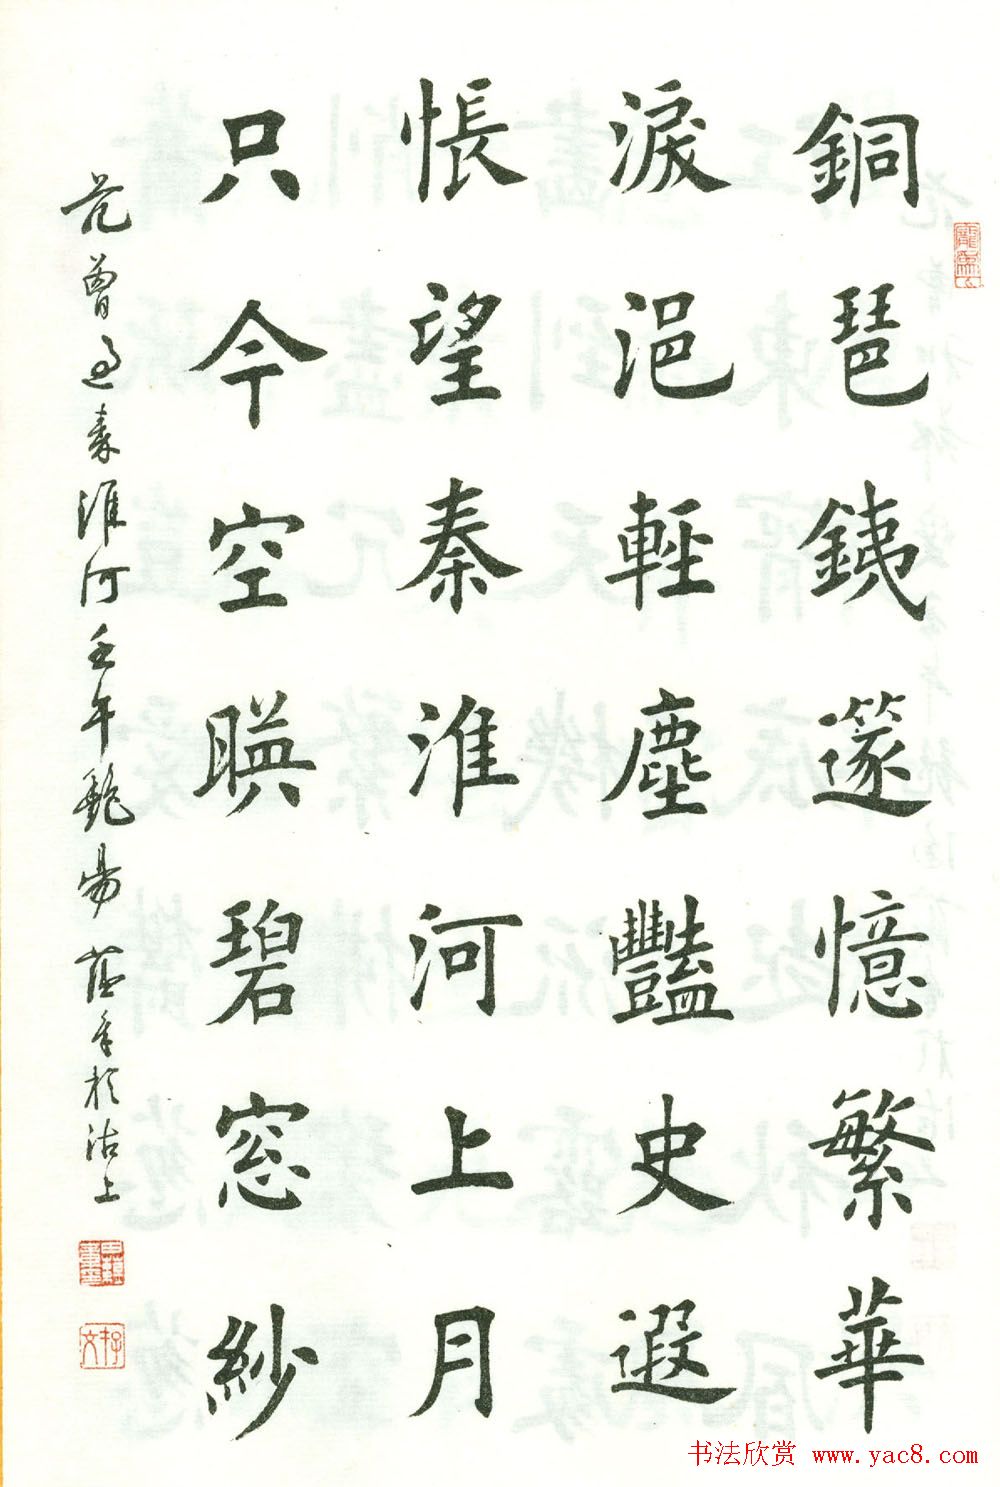 銅琶銕篴憶繁華
淚浥輕塵豔史遐
悵望秦淮河上月
只今空暎碧窓紗
范曾過秦淮河壬午艷陽蘊章於沽上
书法欣赏 www.yac8.com